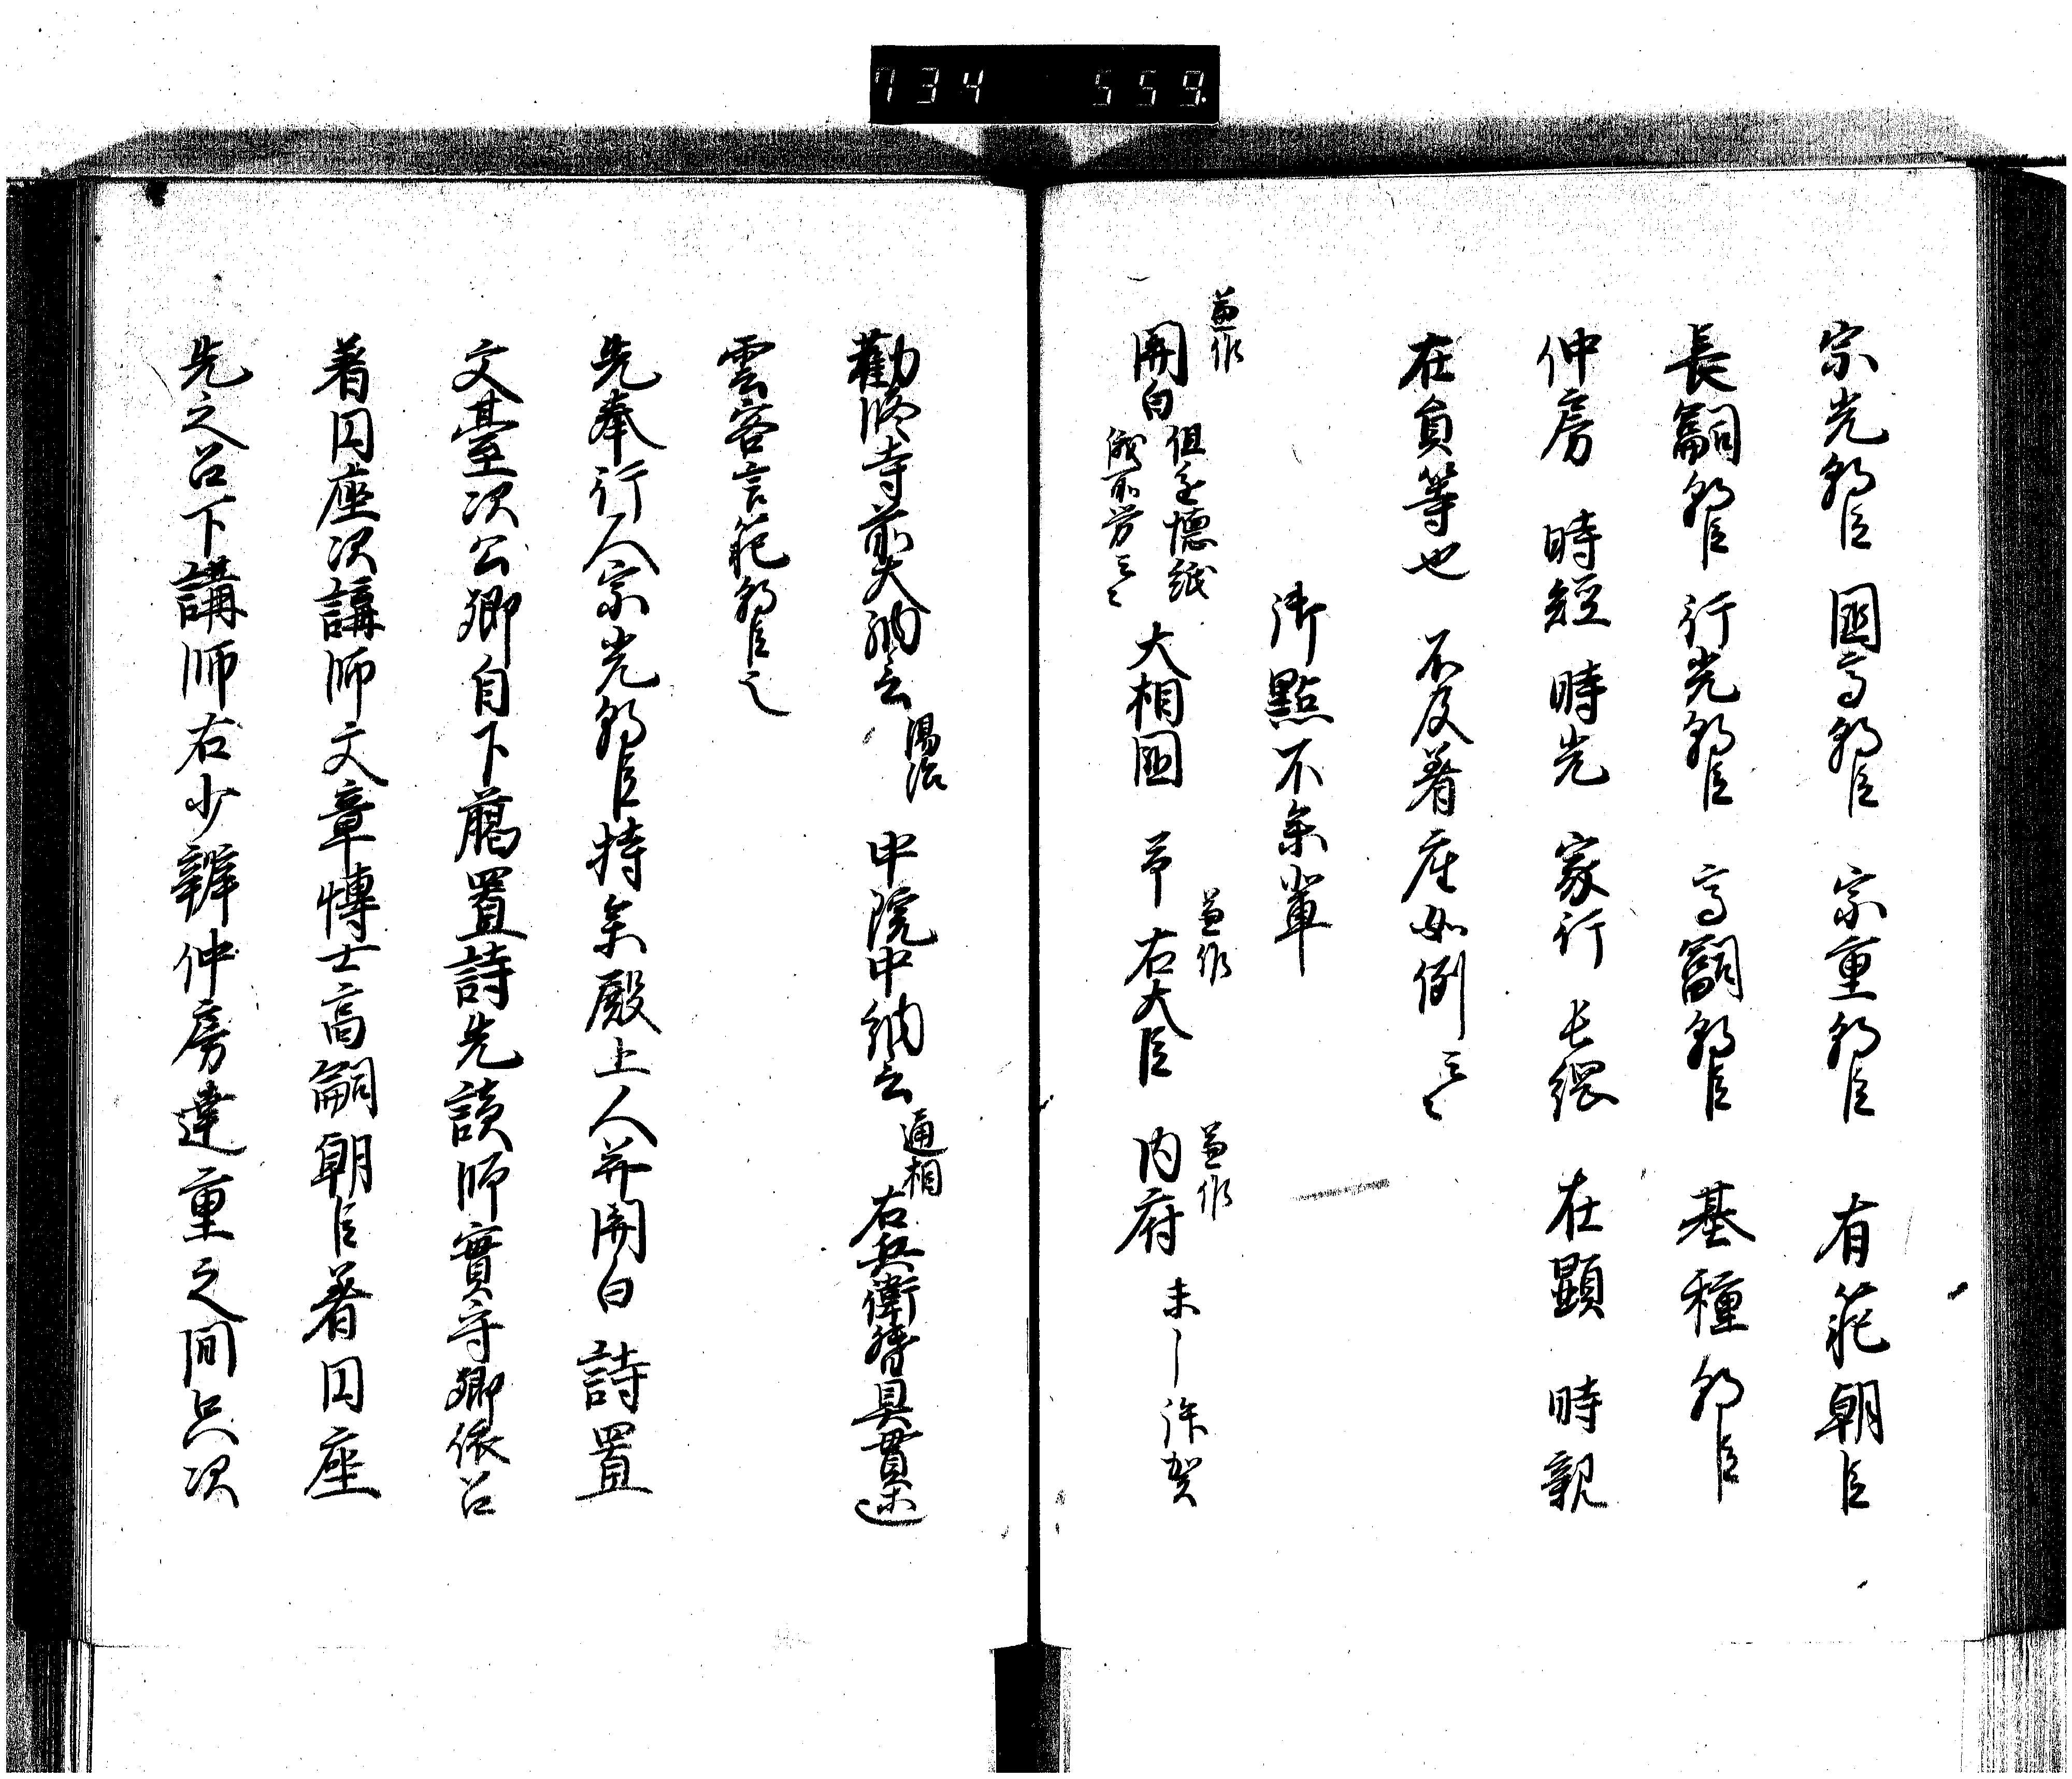 734 559.
宗光朝臣 國高朝臣 宗重朝臣 有範朝臣
長嗣朝臣 行光朝臣 高嗣朝臣 基種朝臣
仲房 時経 時光 家行 長綱 在顕 時親
在貟等也 不及着座如例云々
御點不参輩
兼作
関白 但進懐紙 俄所労云々 大相國 兼作 右大臣 兼作 内府
勧修寺前大納言 湯治 中院中納言 通相 右兵衛督
雲客言範朝臣也
先奉行人宗光朝臣持参殿上人并関白詩置
文臺次公卿自下臈置詩先読師實守卿依召
着円座次講師文章博士高嗣朝臣着円座
先之召下講師右少辨仲房違重之間只次